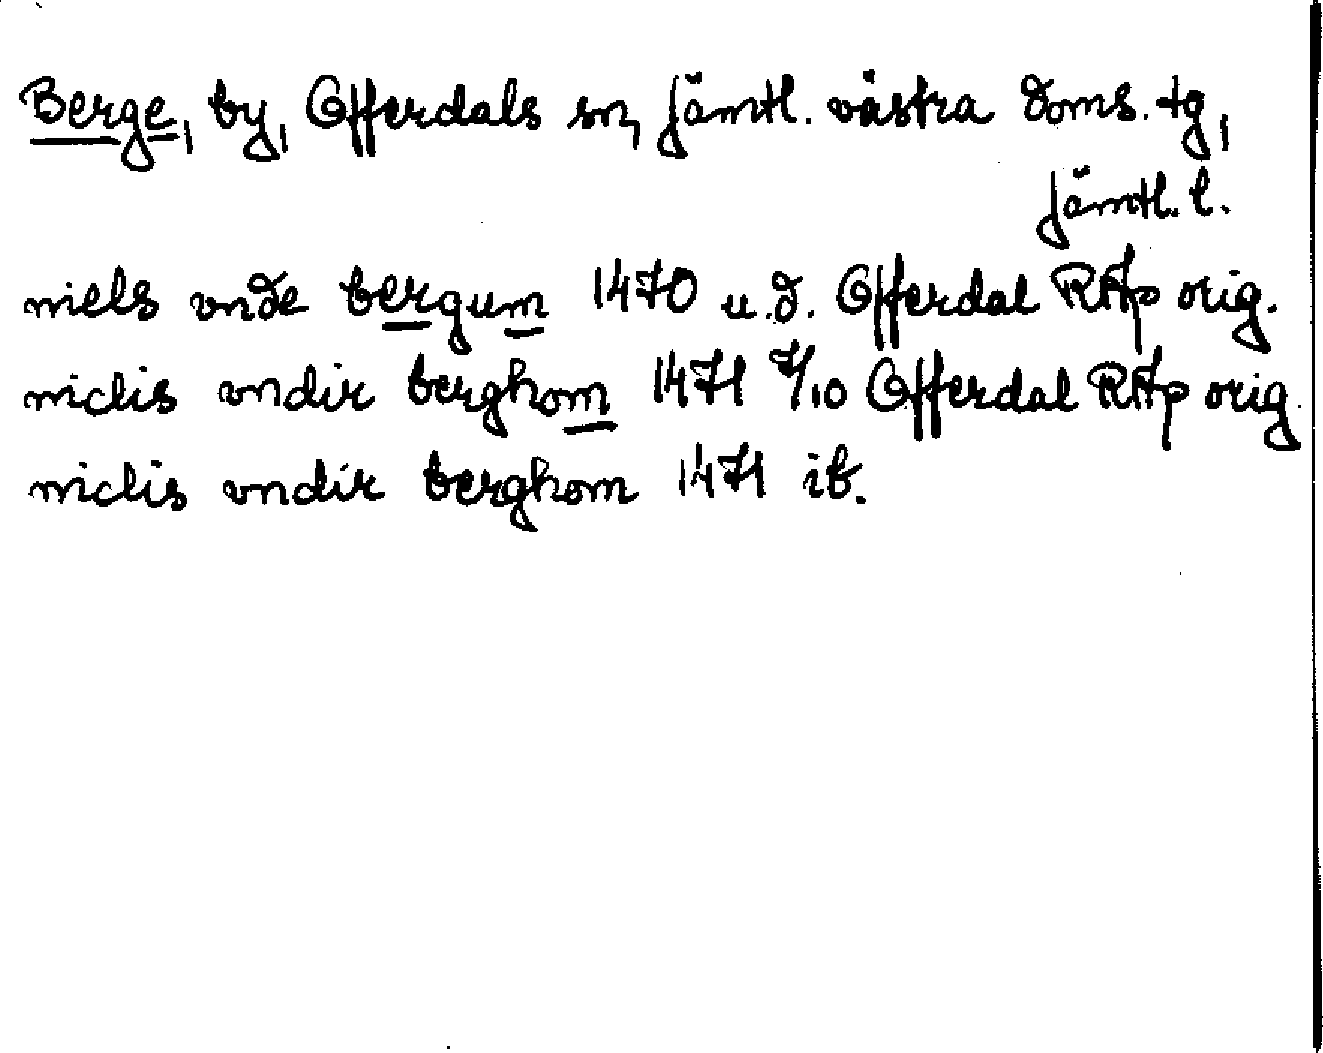 Berge, by, Offerdals sn, Jämtl. västra doms. tg,
Jämtl. l.
niels vnde bergum 1470 u.d. Offerdal RAp orig.
niclis vndir berghom 1471 7/10 Offerdal RAp orig.
niclis vndir berghom 1471 ib.